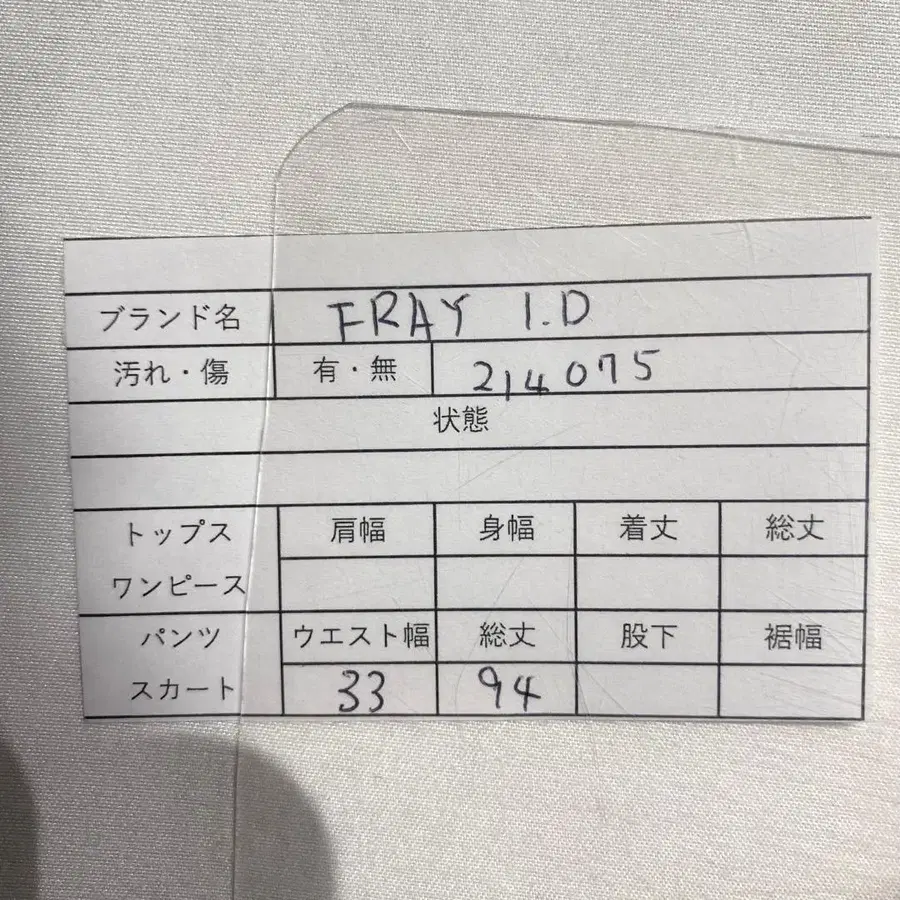 ブランド名 FRAY I.D
汚れ・傷 有・無 214075
状態
トップス 肩幅 身幅 着丈 総丈
ワンピース
パンツ ウエスト幅 総丈 股下 裾幅
スカート 33 94